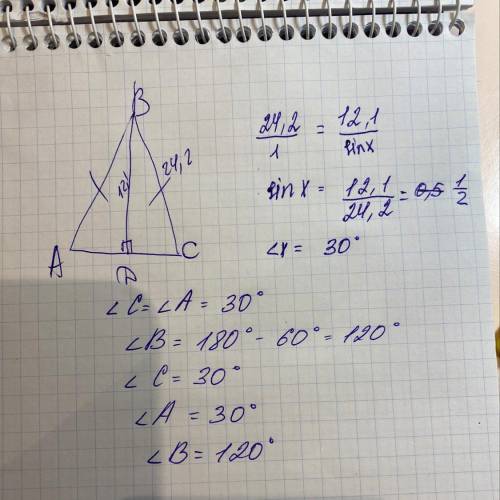 B
12,1
24,2
A
D
C
24,2/1 = 12,1/sinx
sin x = 12,1/24,2 = 0,5 1/2
∠x = 30°
∠C = ∠A = 30°
∠B = 180° - 60° = 120°
∠C = 30°
∠A = 30°
∠B = 120°